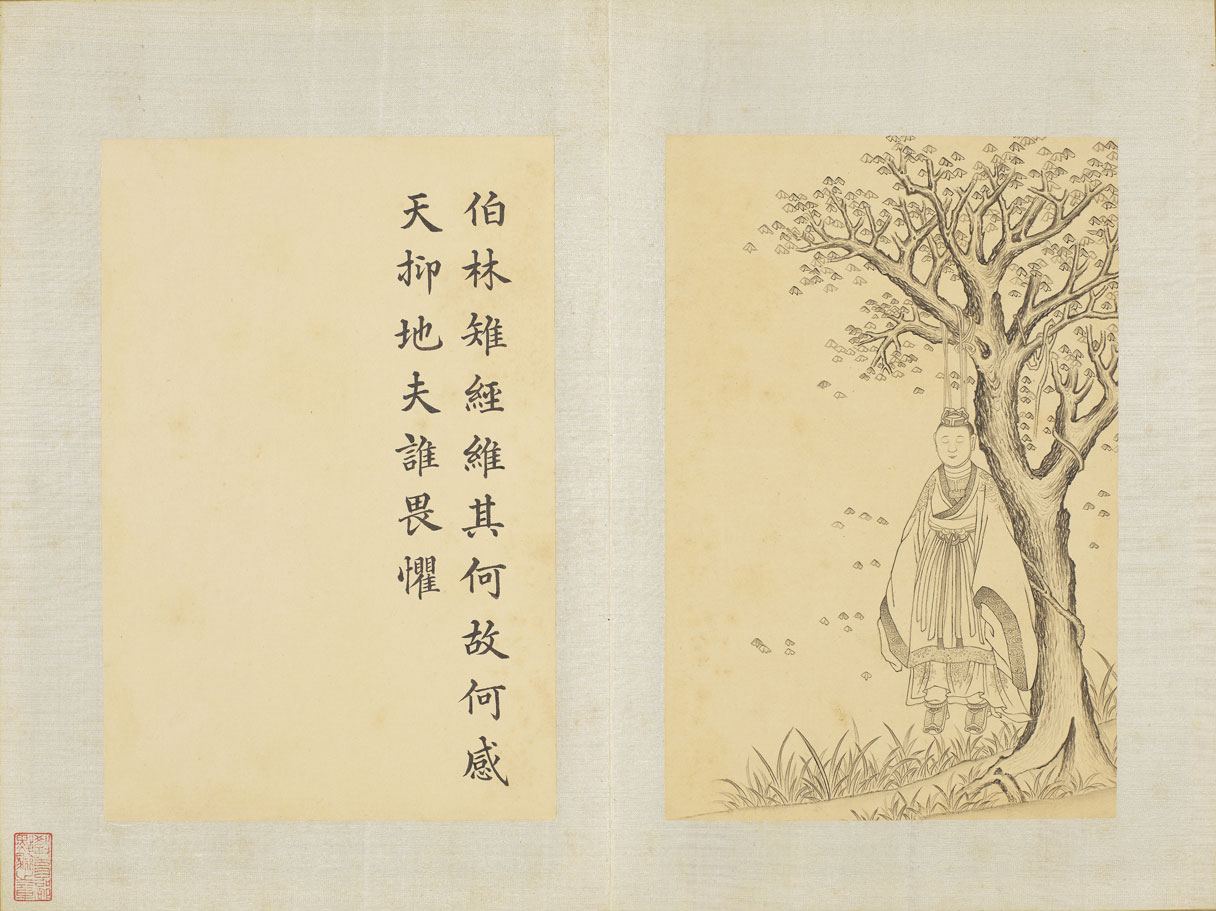 伯林雉經維其何故何感
天抑地夫誰畏懼